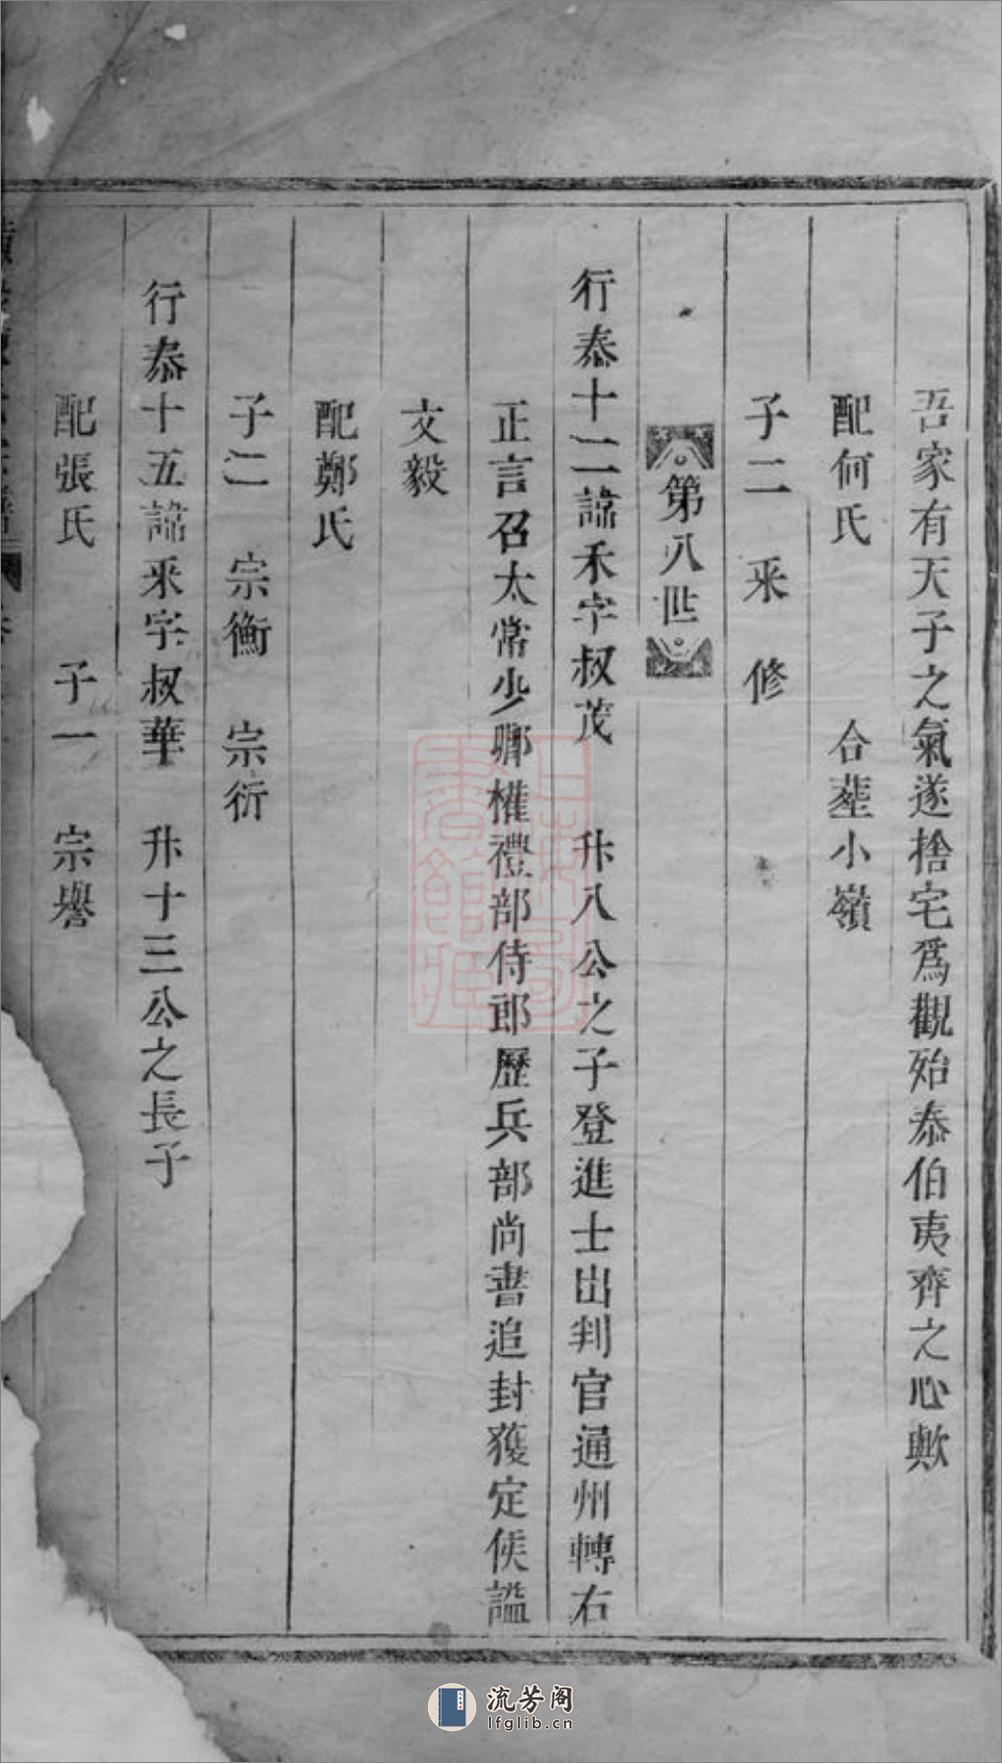 吾家有天子之氣遂捨宅爲觀殆泰伯夷齊之心歟
配何氏 合塟小嶺
子二 采 修
第八世
行泰十二諱禾字叔茂 升八公之子登進士出判官通州轉右
正言召太常少卿權禮部侍郎歷兵部尚書追封獲定侯謚
文毅
配鄭氏
子二 宗衡 宗衍
行泰十五諱采字叔華 升十三公之長子
配張氏 子一 宗譽
流芳阁
lfglib.cn